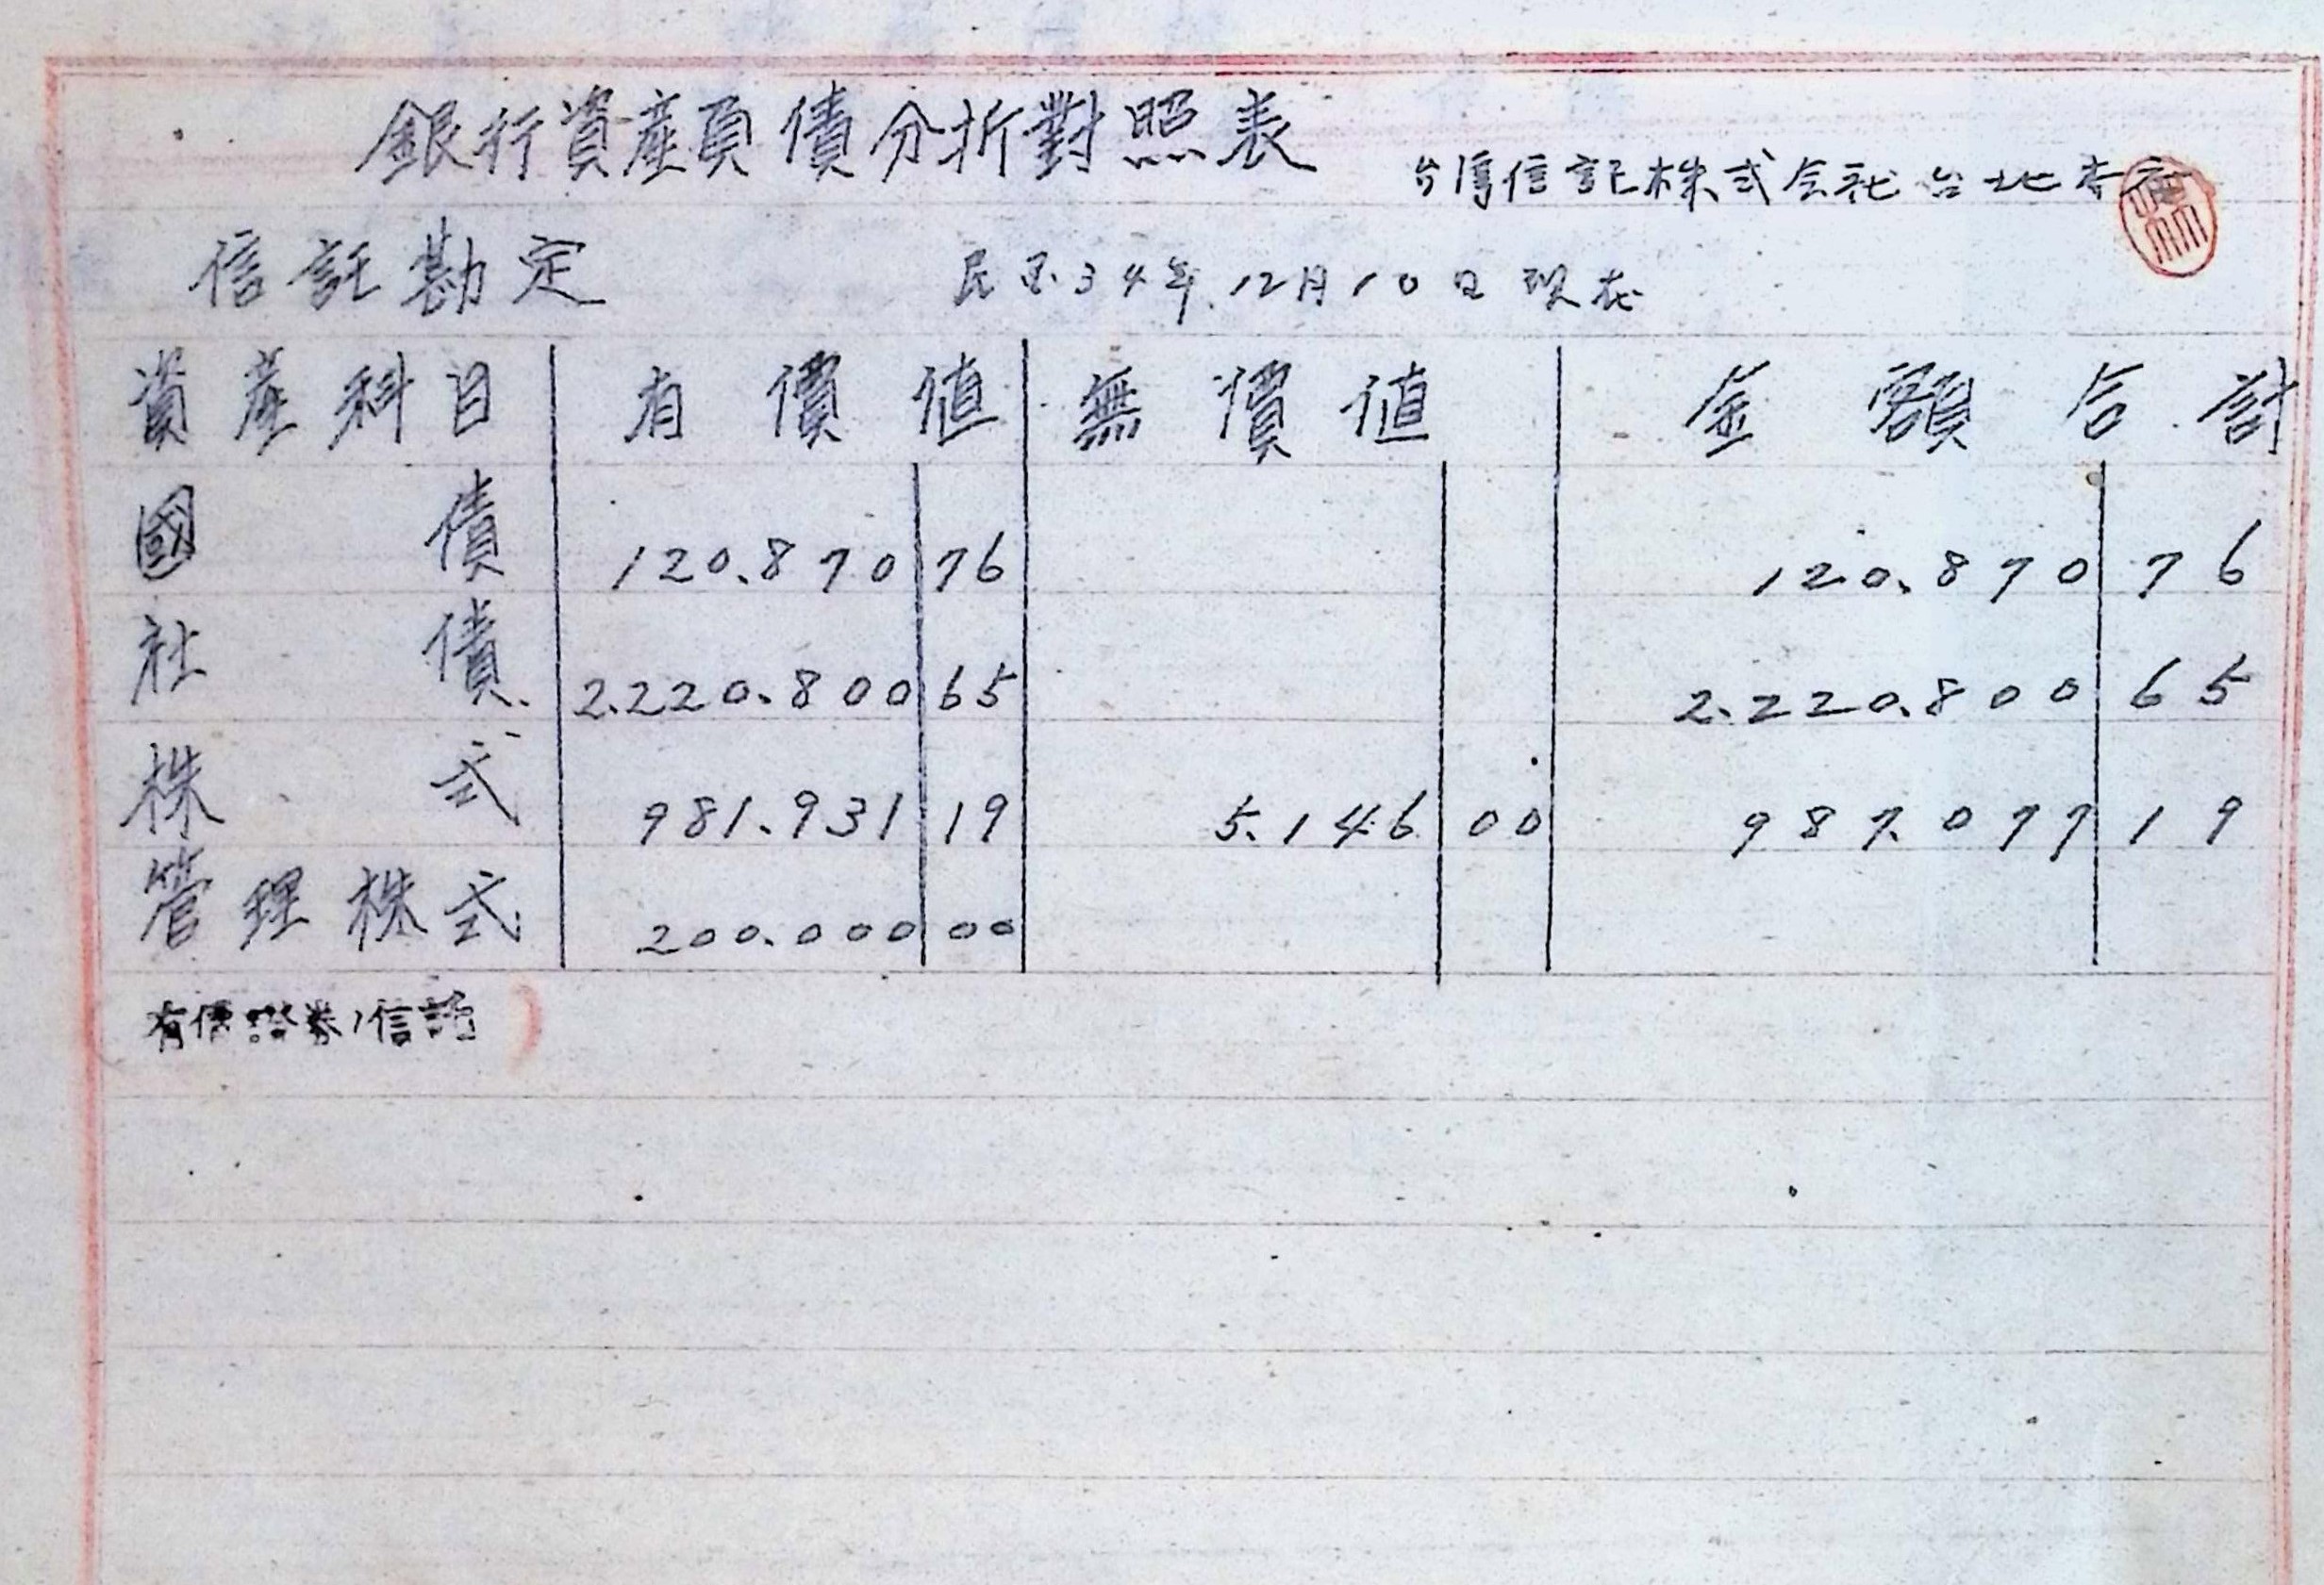 銀行資產負債分析對照表
台湾信託株式会社台北本社
信託勘定
民国34年12月10日現在
資產科目 有價値 無價値 金額合計
國債 120.870 76 120.870 76
社債 2.220.800 65 2.220.800 65
株式 981.931 19 5.146 00 987.077 19
管理株式 200.000 00
有價證券ノ信託